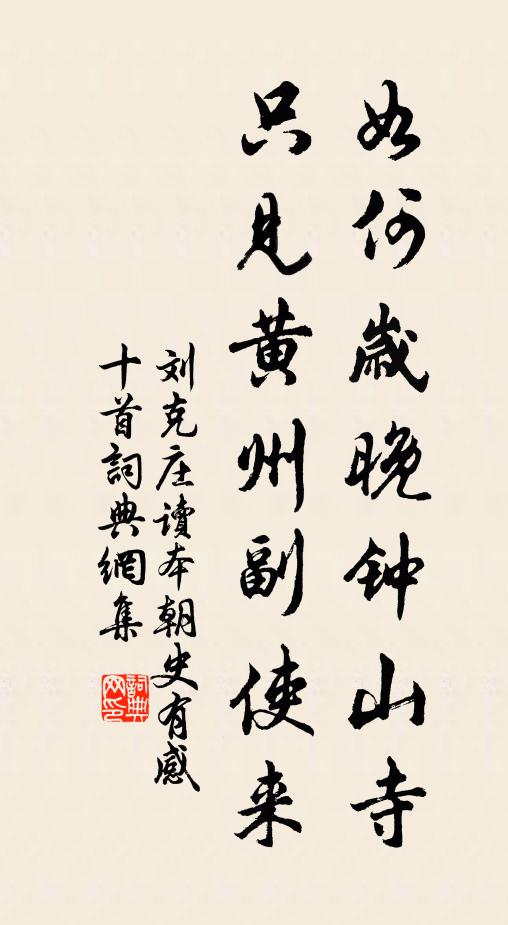 如何歲晚钟山寺
只見黄州副使来
刘克庄讀本朝史有感
十首詞典網集
詞典网印